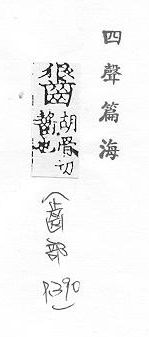 四聲篇海
胡骨切
齧也
(齒部
P390)